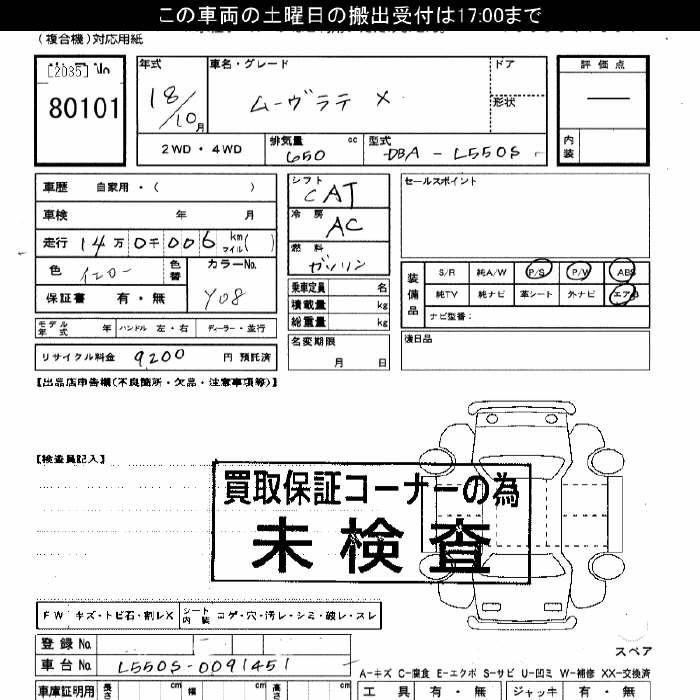 この車両の土曜日の搬出受付は17:00まで
(複合機)対応用紙
[2035] No
80101
年式
18/10月
車名・グレード
ムーヴラテ X
ドア
形状
評価点
—
内装
2WD・4WD
排気量 650 cc
型式 DBA-L550S
車歴 自家用・( )
車検 年 月
走行 14万0千006 km マイル( )
色 イエロー 色替
カラーNo. Y08
保証書 有・無
モデル年式 年 ハンドル 左・右 ディーラー・並行
リサイクル料金 9200 円 預託済
シフト CAT
冷房 AC
燃料 ガソリン
乗車定員 名
積載量 kg
総重量 kg
名変期限 月 日
セールスポイント
装備品
S/R 純A/W P/S P/W ABS
純TV 純ナビ 革シート 外ナビ エアB
ナビ型番:
後日品
【出品店申告欄(不良箇所・欠品・注意事項等)】
【検査員記入】
買取保証コーナーの為
未検査
FW キズ・トビ石・割レX シート内装 コゲ・穴・汚レ・シミ・破レ・スレ
登録No.
車台No. L550S-0091451
スペア
A-キズ C-腐食 E-エクボ S-サビ U-凹ミ W-補修 XX-交換済
車庫証明用 長さ cm 幅 cm 高さ cm
工具 有・無 ジャッキ 有・無